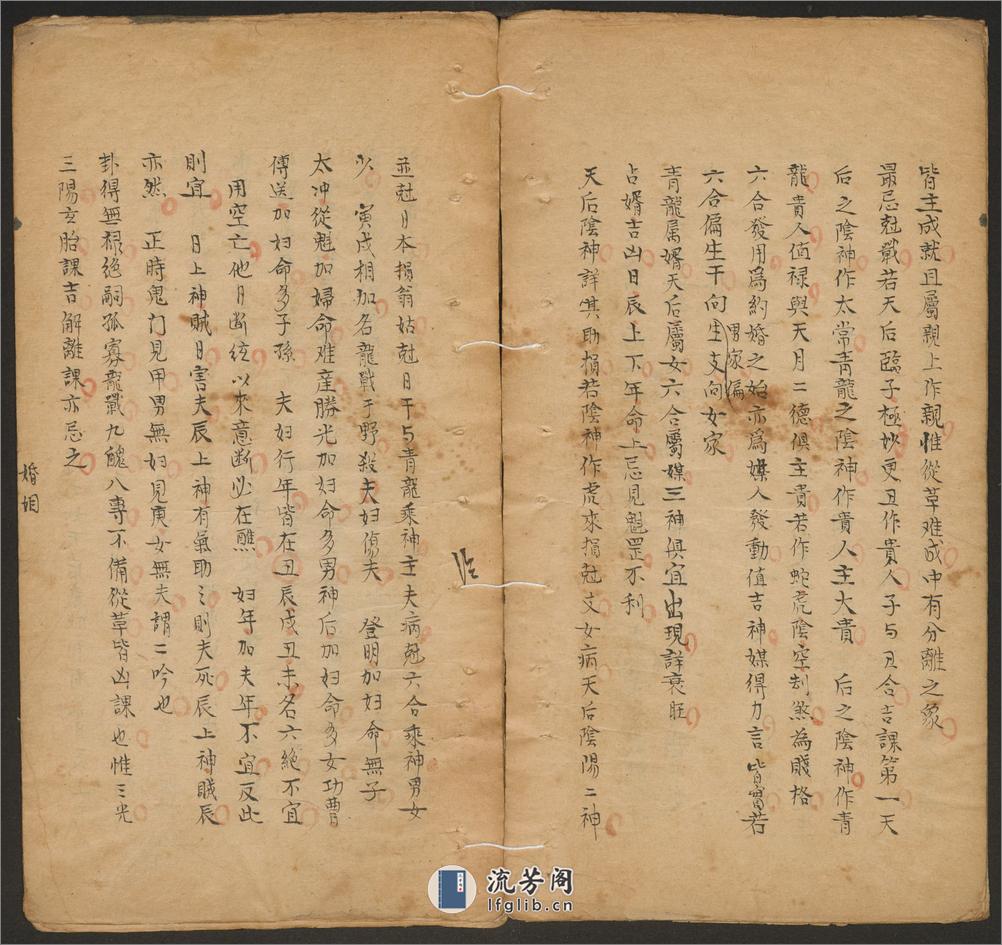 皆主成就且屬親上作親惟從革难成中有分離之象
最忌尅戰若天后臨子極妙更丑作貴人子与丑合吉課第一天
后之陰神作太常青龍之陰神作貴人主大貴　后之陰神作青
龍貴人值禄與天月二德俱主貴若作蛇虎陰空刦煞為賤格
六合發用爲約婚之始亦爲媒人發動值吉神媒得力言皆實若
六合偏生干向生支向女家
男家偏
青龍属婿天后屬女六合屬媒三神俱宜出現詳衰旺
占婿吉凶日辰上下年命上忌見魁罡不利
天后陰神詳其助損若陰神作虎來損尅支女病天后陰陽二神
並尅日本損翁姑尅日干与青龍乘神主夫病尅六合乘神男女
少　寅戌相加名龍戰于野殺夫妇傷夫　登明加妇命無子
太冲從魁加婦命难産勝光加妇命多男神后加妇命多女功曹
傳送加妇命多子孫　夫妇行年皆在丑辰戌丑未名六絶不宜
用空亡他日断絃以來意断必在醮　妇年加夫年不宜反此
則宜　日上神賊日害夫辰上神有氣助之則夫死辰上神賊辰
亦然　正時鬼门見甲男無妇見庚女無夫謂二吟也
卦得無禄絕嗣孤寡龍戰九醜八專不備從革皆凶課也惟三光
三陽玄胎課吉解離課亦忌之
婚姻
流芳阁
lfglib.cn